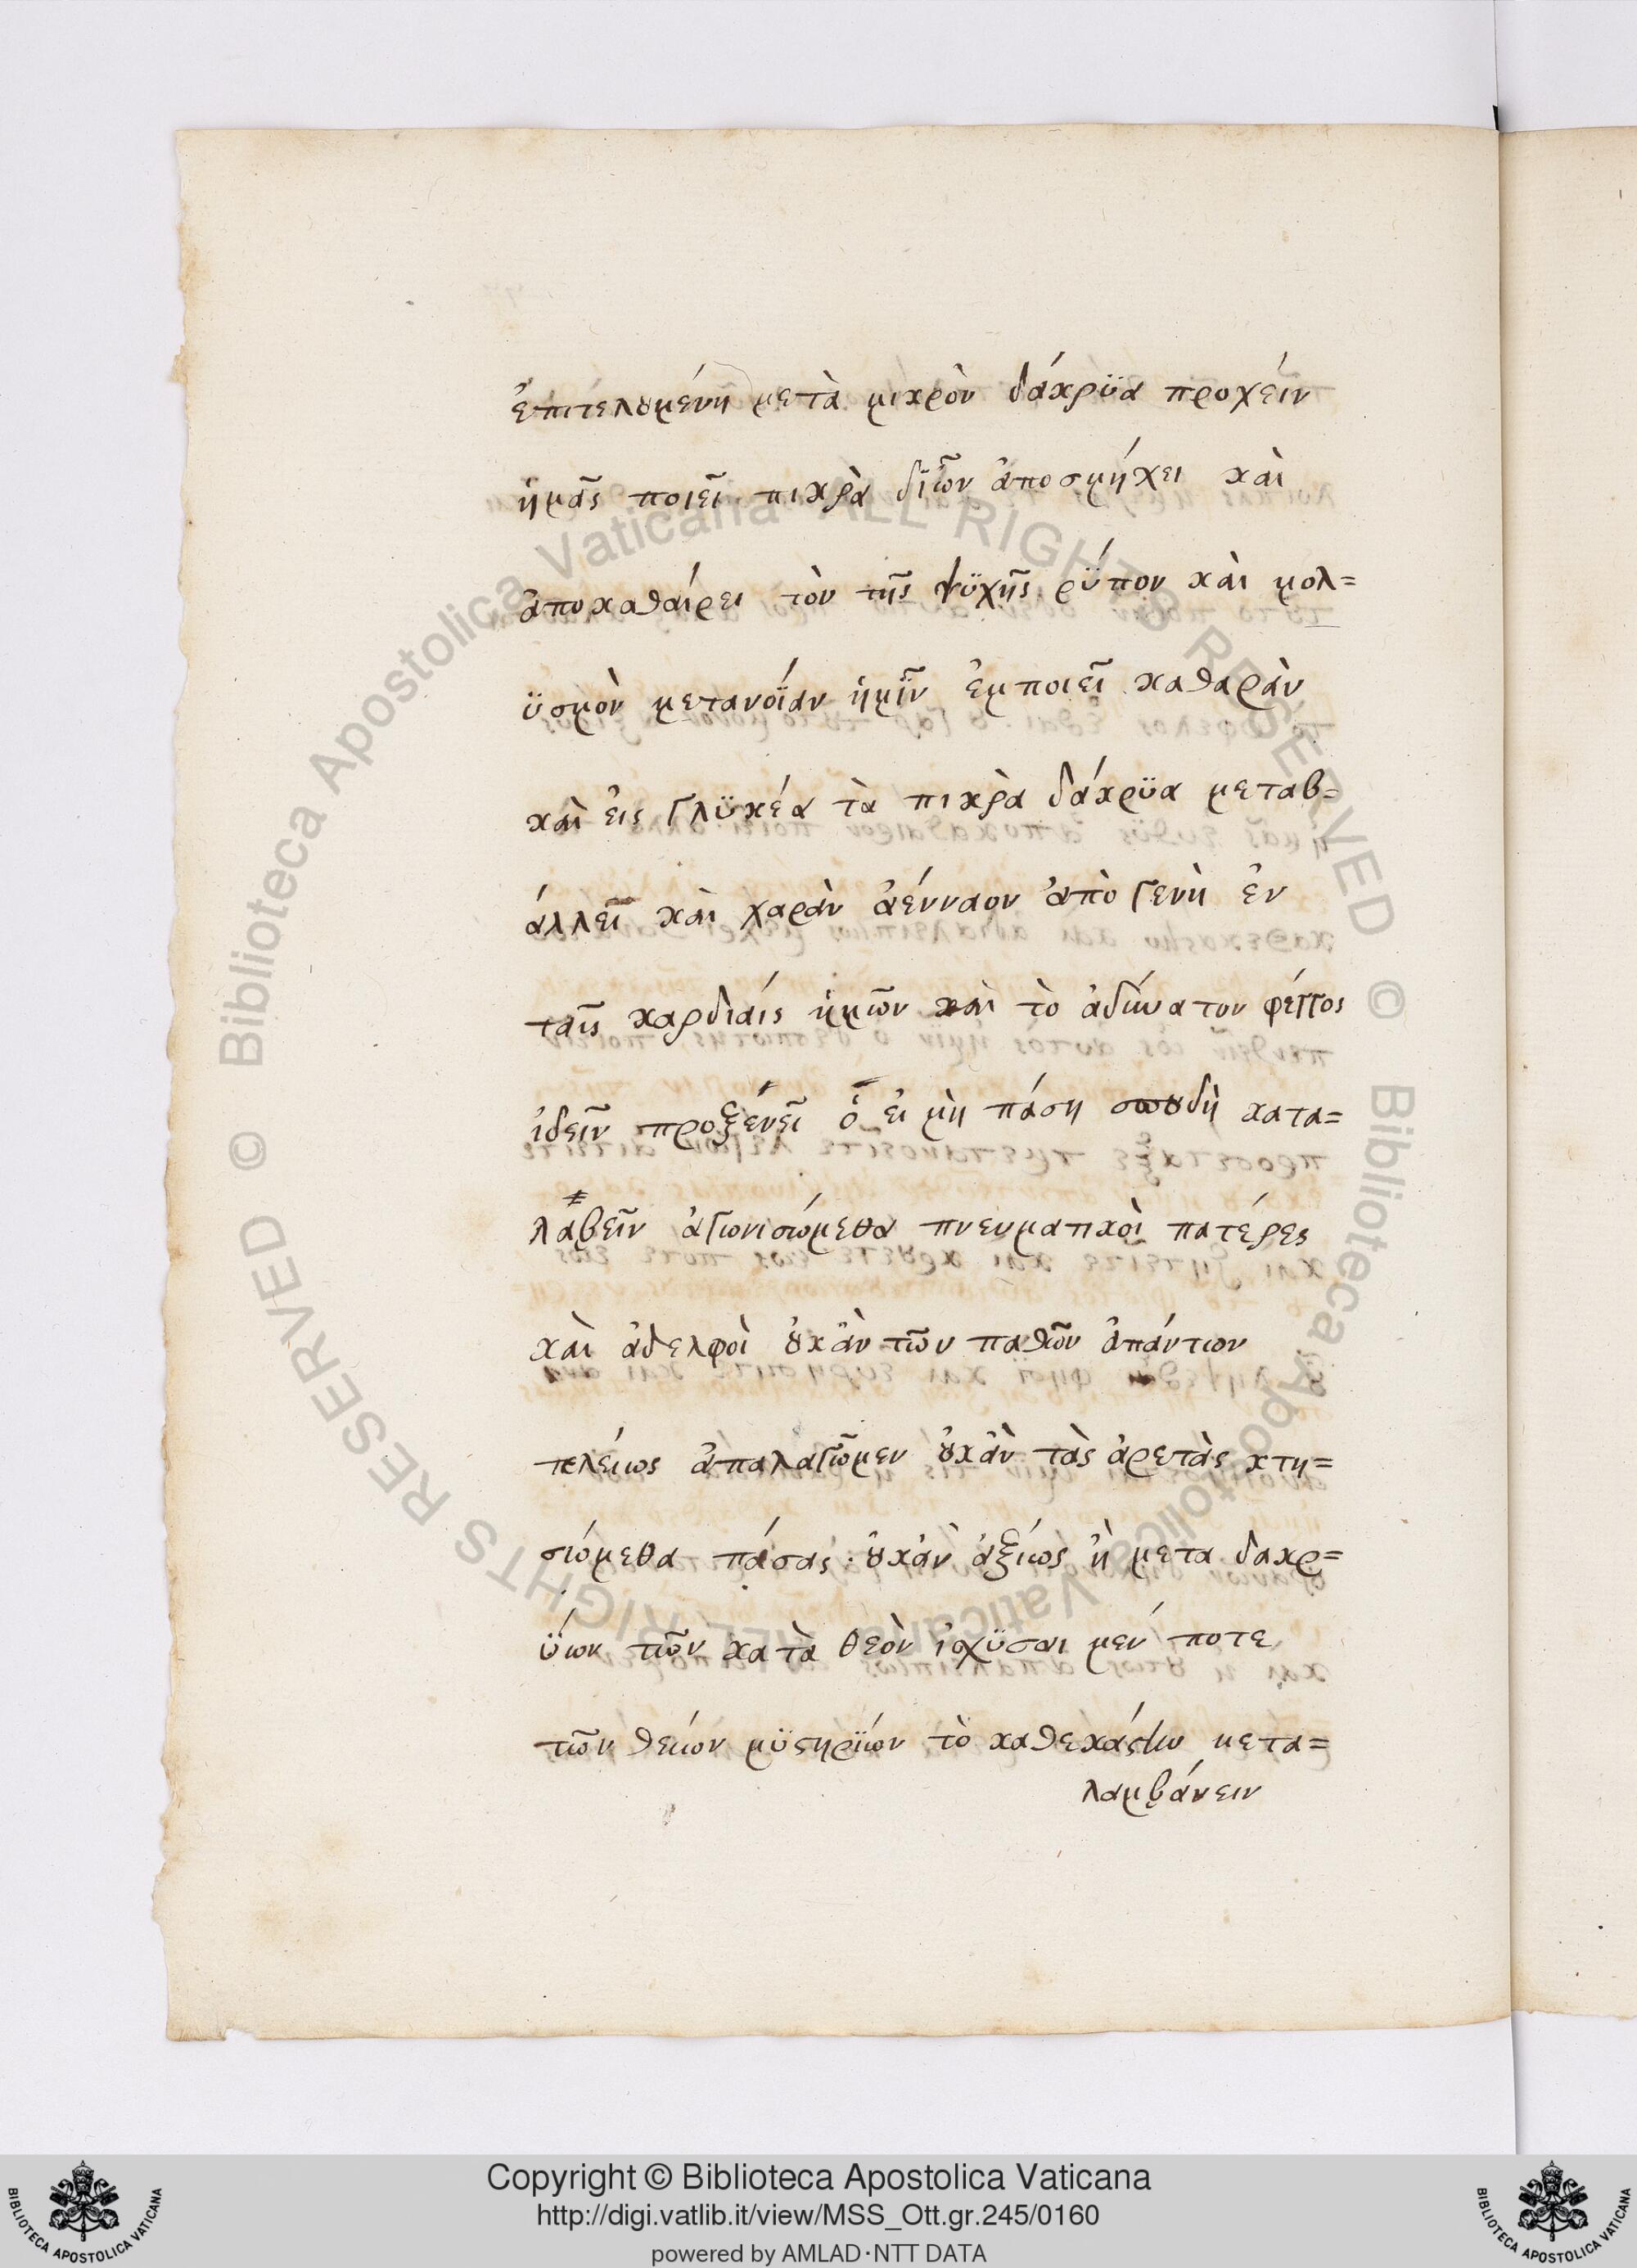 ἐπιτελουμένη μετὰ μικρὸν δάκρϋα προχέιν
ἡμᾶς ποιεῖ πικρὰ δἰῶν ἀποσμήχει καὶ
ἀποκαθάιρει τὸν τῆς ψϋχῆς ρΰπον καὶ μολ=
ϋσμὸν μετανοΐαν ἡμῖν ἐμποιεῖ καθαρὰν
καὶ ἐις γλϋκέα τὰ πικρὰ δάκρϋα μεταβ=
άλλεῖ καὶ χαρὰν ἀένναον ἀπὸ γενὴ ἐν
ταῖς καρδιάις ἡμῶν καὶ τὸ ἀδύνατον φέγγος
ἰδεῖν προξένεῖ ὅ ἐι μὴ πάση σπουδὴ κατα=
λάβεῖν ἀγωνισώμεθα πνευματικοὶ πατέρες
καὶ ἀδελφοὶ οὐκἂν τῶν παθῶν ἁπάντων
τελέιως ἀπαλαγῶμεν οὐκἂν τὰς ἀρετὰς κτη=
σώμεθα πάσας · οὐκἂν ἀξίως ἢ μετα δακρ=
ΰων τῶν κατὰ θεὸν ἰσχϋσαι μέν ποτε
τῶν θείων μϋστηρΐων τὸ καθεκάστην μετα=
λαμβάνειν
Copyright © Biblioteca Apostolica Vaticana
http://digi.vatlib.it/view/MSS_Ott.gr.245/0160
powered by AMLAD·NTT DATA
BIBLIOTECA APOSTOLICA VATICANA
BIBLIOTECA APOSTOLICA VATICANA
© Biblioteca Apostolica Vaticana ALL RIGHTS RESERVED © Biblioteca Apostolica Vaticana ALL RIGHTS RESERVED